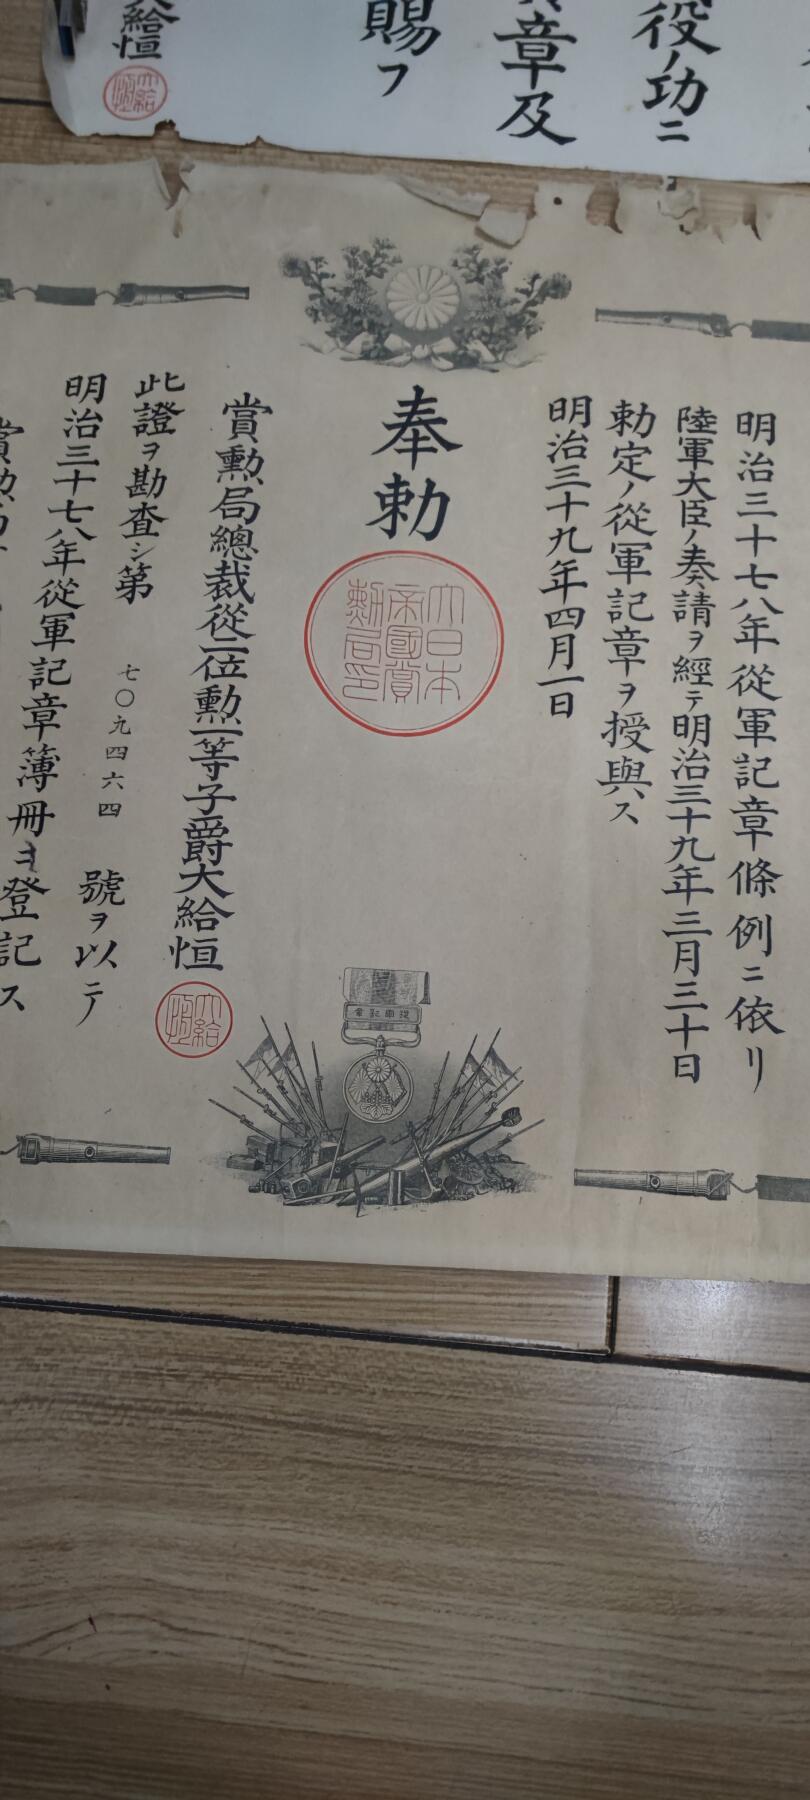 役ノ功ニ
章及
賜フ
給恒
明治三十七八年從軍記章條例ニ依リ
陸軍大臣ノ奏請ヲ經テ明治三十九年三月三十日
勅定ノ從軍記章ヲ授與ス
明治三十九年四月一日
奉勅
大日本
帝國賞
勲局印
賞勲局總裁從二位勲一等子爵大給恒
大給
恒
此證ヲ勘査シ第七〇九四六四號ヲ以テ
明治三十七八年從軍記章簿冊ヨ登記ス
賞勲局
從軍記章